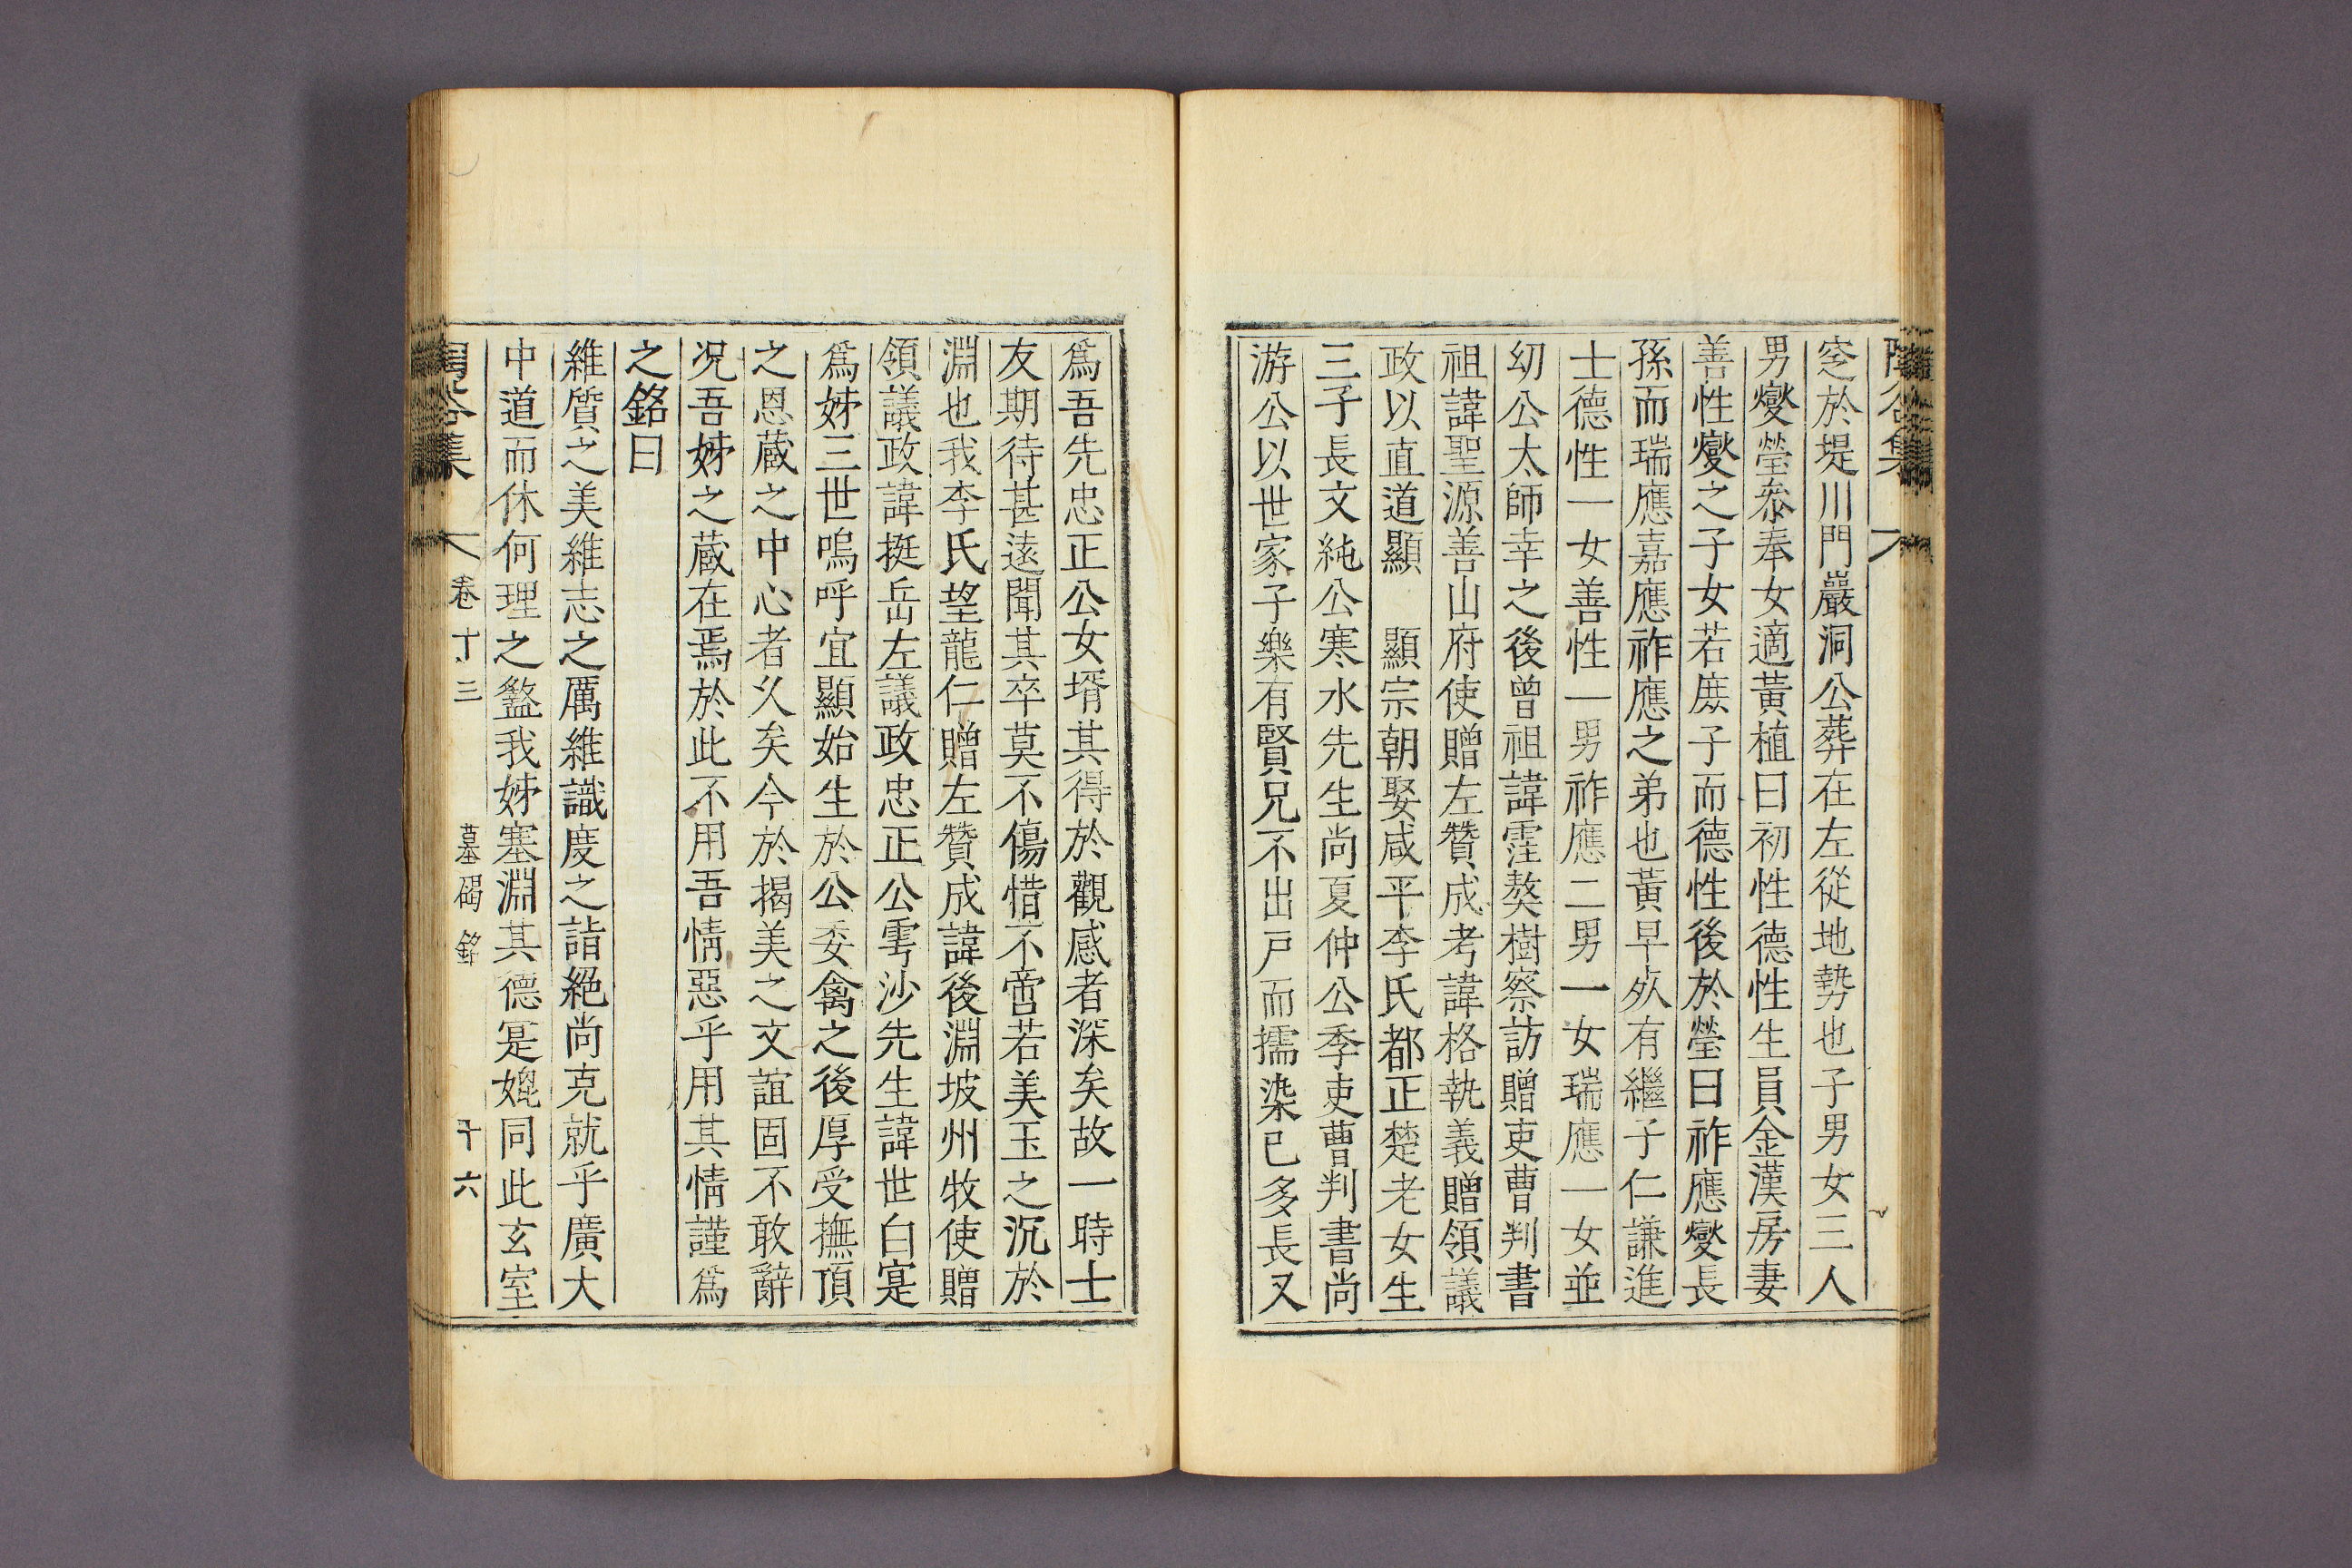 窆於堤川門巖洞公葬在左從地勢也子男女三人
男燮瑩叅奉女適黃植曰初性德性生員金漢房妻
善性燮之子女若庶子而德性後於瑩曰祚應燮長
孫而瑞應嘉應祚應之弟也黃早殀有繼子仁謙進
士德性一女善性一男祚應二男一女瑞應一女並
幼公太師幸之後曾祖諱霔獒樹察訪贈吏曹判書
祖諱聖源善山府使贈左贊成考諱格執義贈領議
政以直道顯 顯宗朝娶咸平李氏都正楚老女生
三子長文純公寒水先生尚夏仲公季吏曹判書尚
游公以世家子樂有賢兄不出戶而擩染已多長又
爲吾先忠正公女壻其得於觀感者深矣故一時士
友期待甚遠聞其卒莫不傷惜不啻若美玉之沉於
淵也我李氏望龍仁贈左贊成諱後淵坡州牧使贈
領議政諱挺岳左議政忠正公雩沙先生諱世白寔
爲姊三世嗚呼宜顯始生於公委禽之後厚受撫頂
之恩蔵之中心者久矣今於揭美之文誼固不敢辭
况吾姊之蔵在焉於此不用吾情惡乎用其情謹爲
之銘曰
維質之美維志之厲維識度之詣絶尚克就乎廣大
中道而休何理之盭我姊塞淵其德寔媲同此玄室
陶谷集 卷十三 墓碣銘 十六